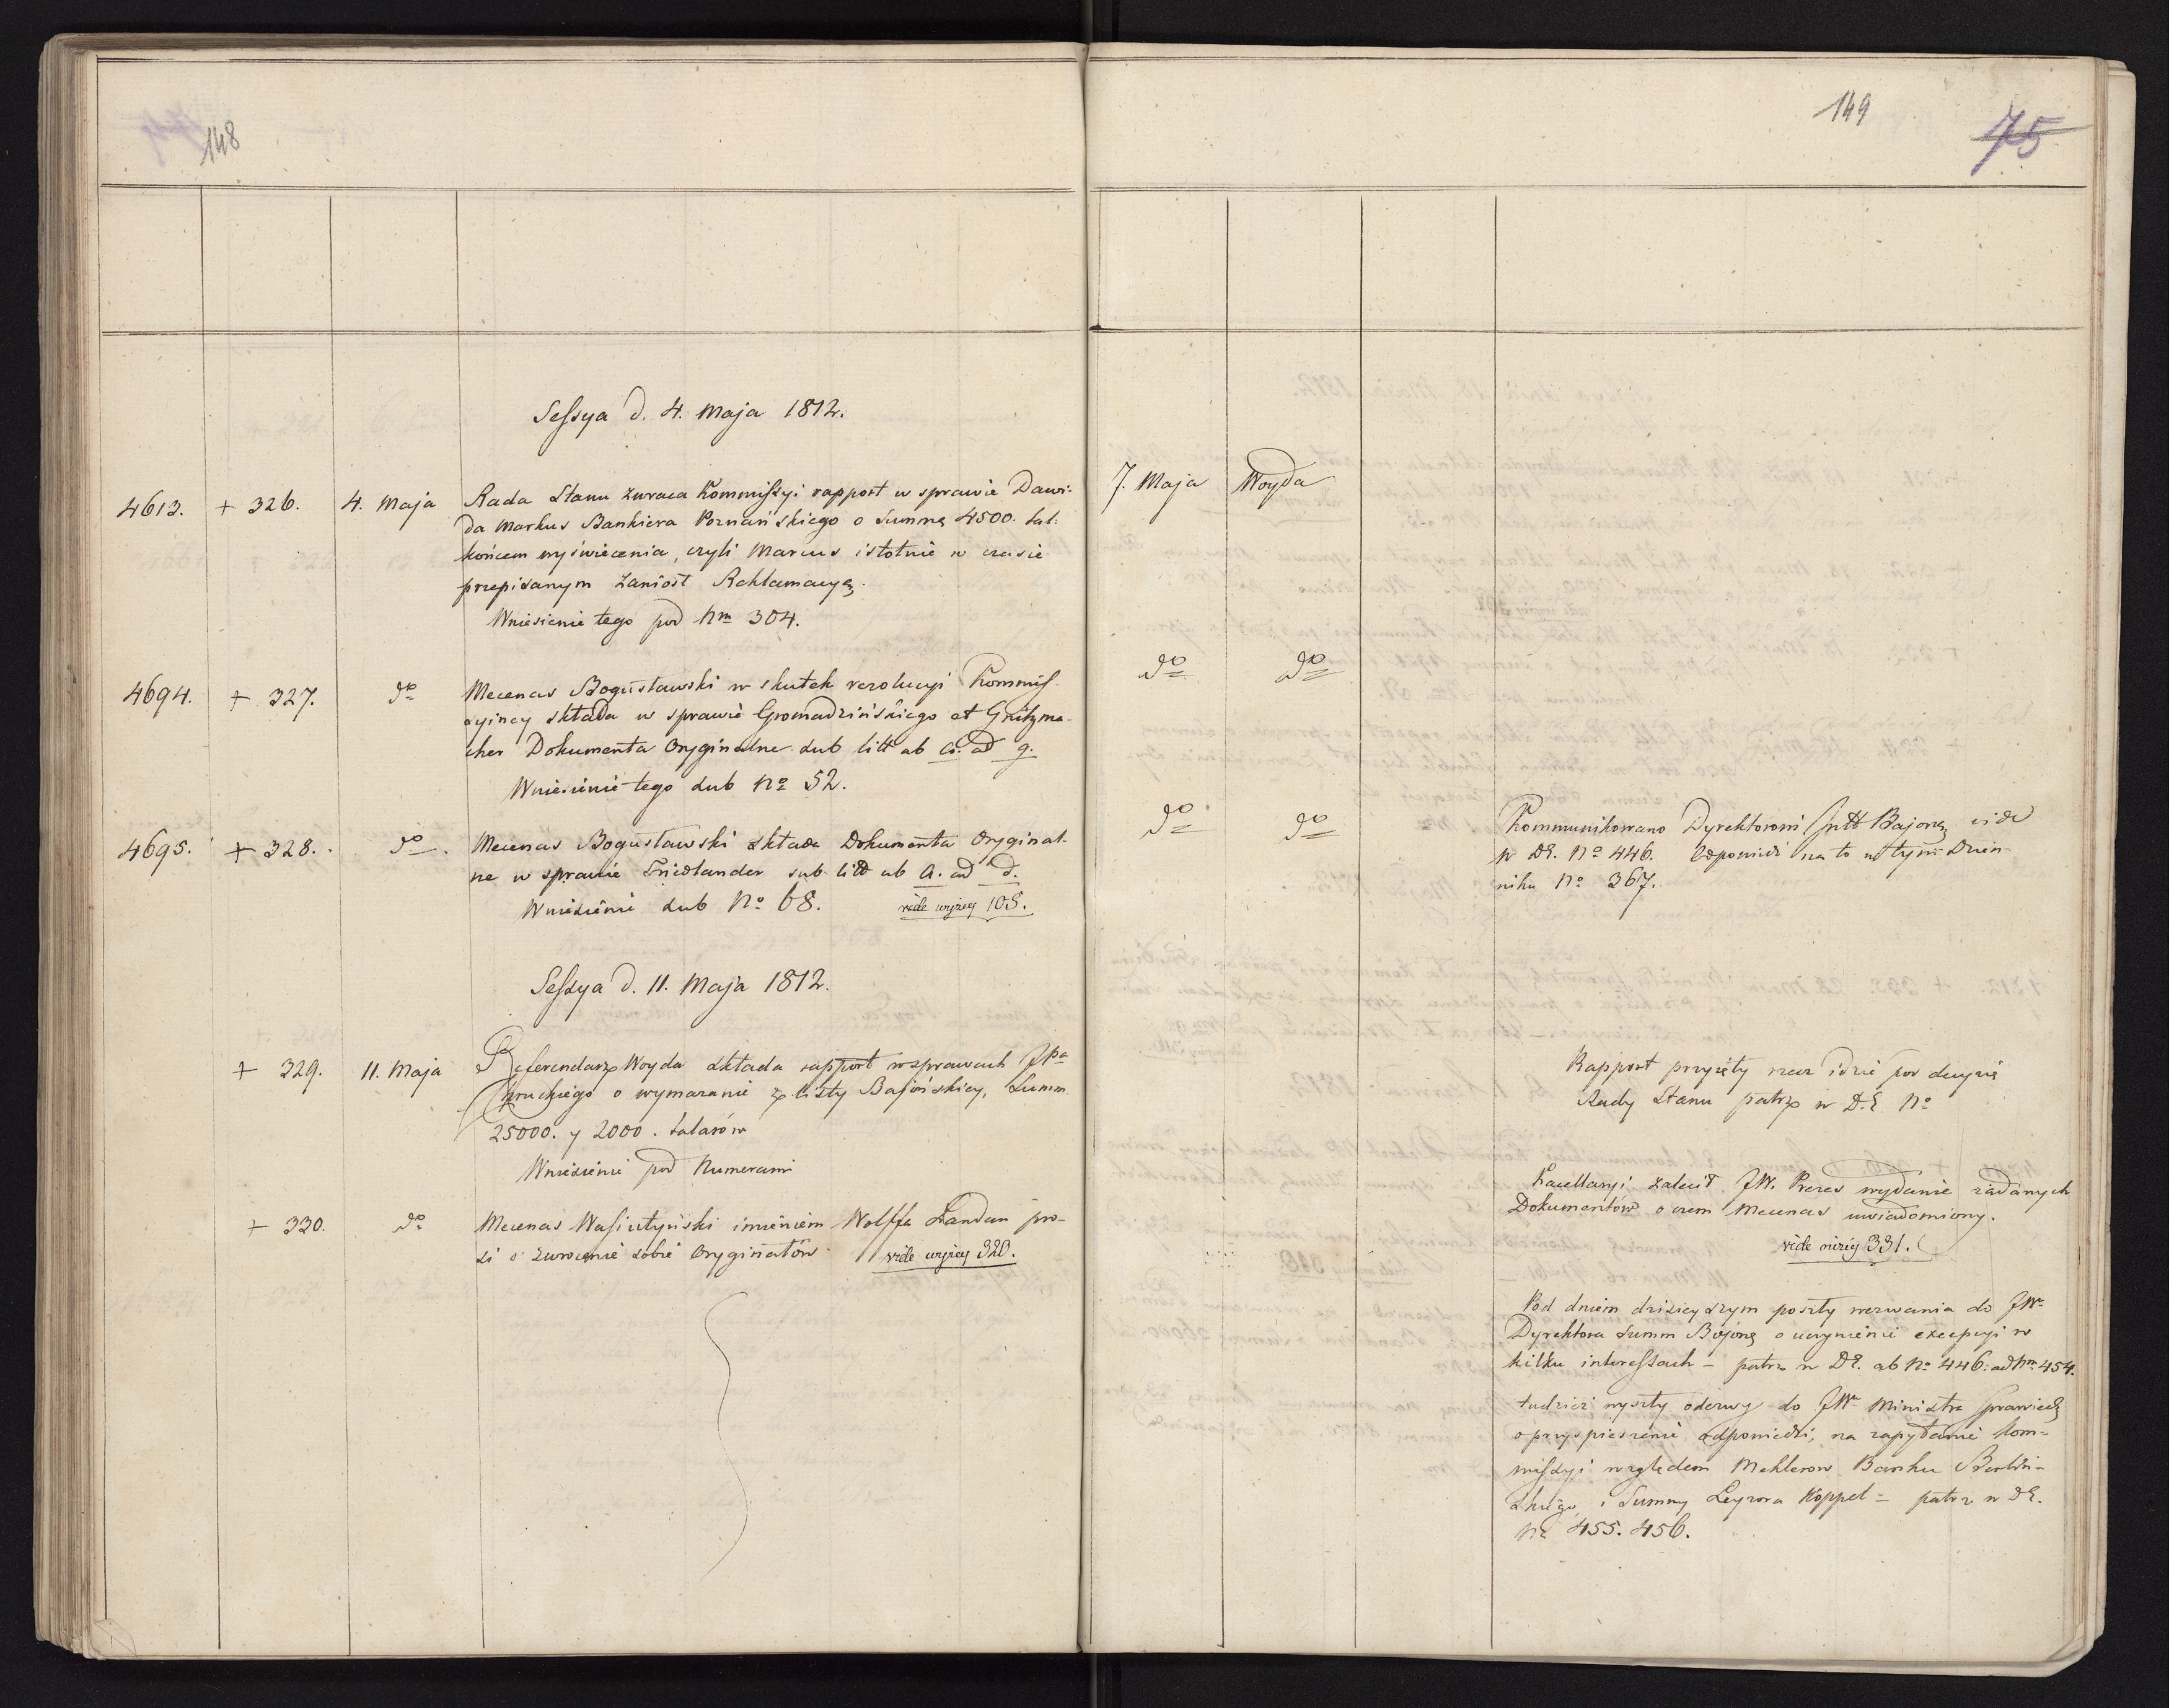 148
Sessya d. 4. Maja 1812.
4613. + 326. 4. Maja Rada Stanu zwraca Kommissyi rapport w sprawie Dawi-
da Markus Bankiera Poznańskiego o Summę 4500. tal:
końcem wyświecenia, czyli Marcus istotnie w czasie
przepisanym zaniosł Reklamacyą.
Wniesienie tego pod Nm 304.
4694. + 327. do Mecenas Bogusławski w skutek rezolucyi Kommis-
syiney składa w sprawie Gromadzińskiego et Gritzma-
cher Dokumenta Oryginalne sub litt ab a. ad g.
Wniesienie tego sub No 52.
4695. + 328. do Mecenas Bogusławski składa Dokumenta Oryginal-
ne w sprawie Friedlander sub litt ab a. ad d.
Wniesienie sub No 68. vide wyżey 105.
Sessya d. 11. Maja 1812.
+ 329. 11. Maja Referendarz Woyda składa rapport w sprawach JPa
o wymazanie z listy Bajońskiey, Summ
25000. y 2000. talarów
Wniesienie pod Numerami
+ 330. do Mecenas Wasiutyński imieniem Wolffa Landau pro-
si o zwrocenie sobie Oryginałów. vide wyżey 320.
149
75
7. Maja Woyda
do do
do do Kommunikowano Dyrektorowi Bajonn vide
w DE. No 446. Odpowiedź na to w tym Dzien-
niku No 367.
Rapport przyięty teraz idzie pod decyzią
Rady Stanu patrz w D.E. No
Kancellaryi zalecił JW. Prezes wydanie żądanych
Dokumentów o czem Mecenas uwiadomiony.
vide niżéy 331.
Pod dniem dzisieyszym poszły wezwania do JWo
Dyrektora Summ Bajonn o uczynienie excepcyi w
kilku interessach – patrz w DE. ab No 446. ad Nm 454.
tudzież wyszły odezwy do JWo Ministra Sprawiedl
o przyspieszenie odpowiedzi, na zapytanie Kom-
missyi względem Meklerow Banku Berliń-
skiego, i Summy Leyzora Koppel – patrz w DE.
No 455. 456.